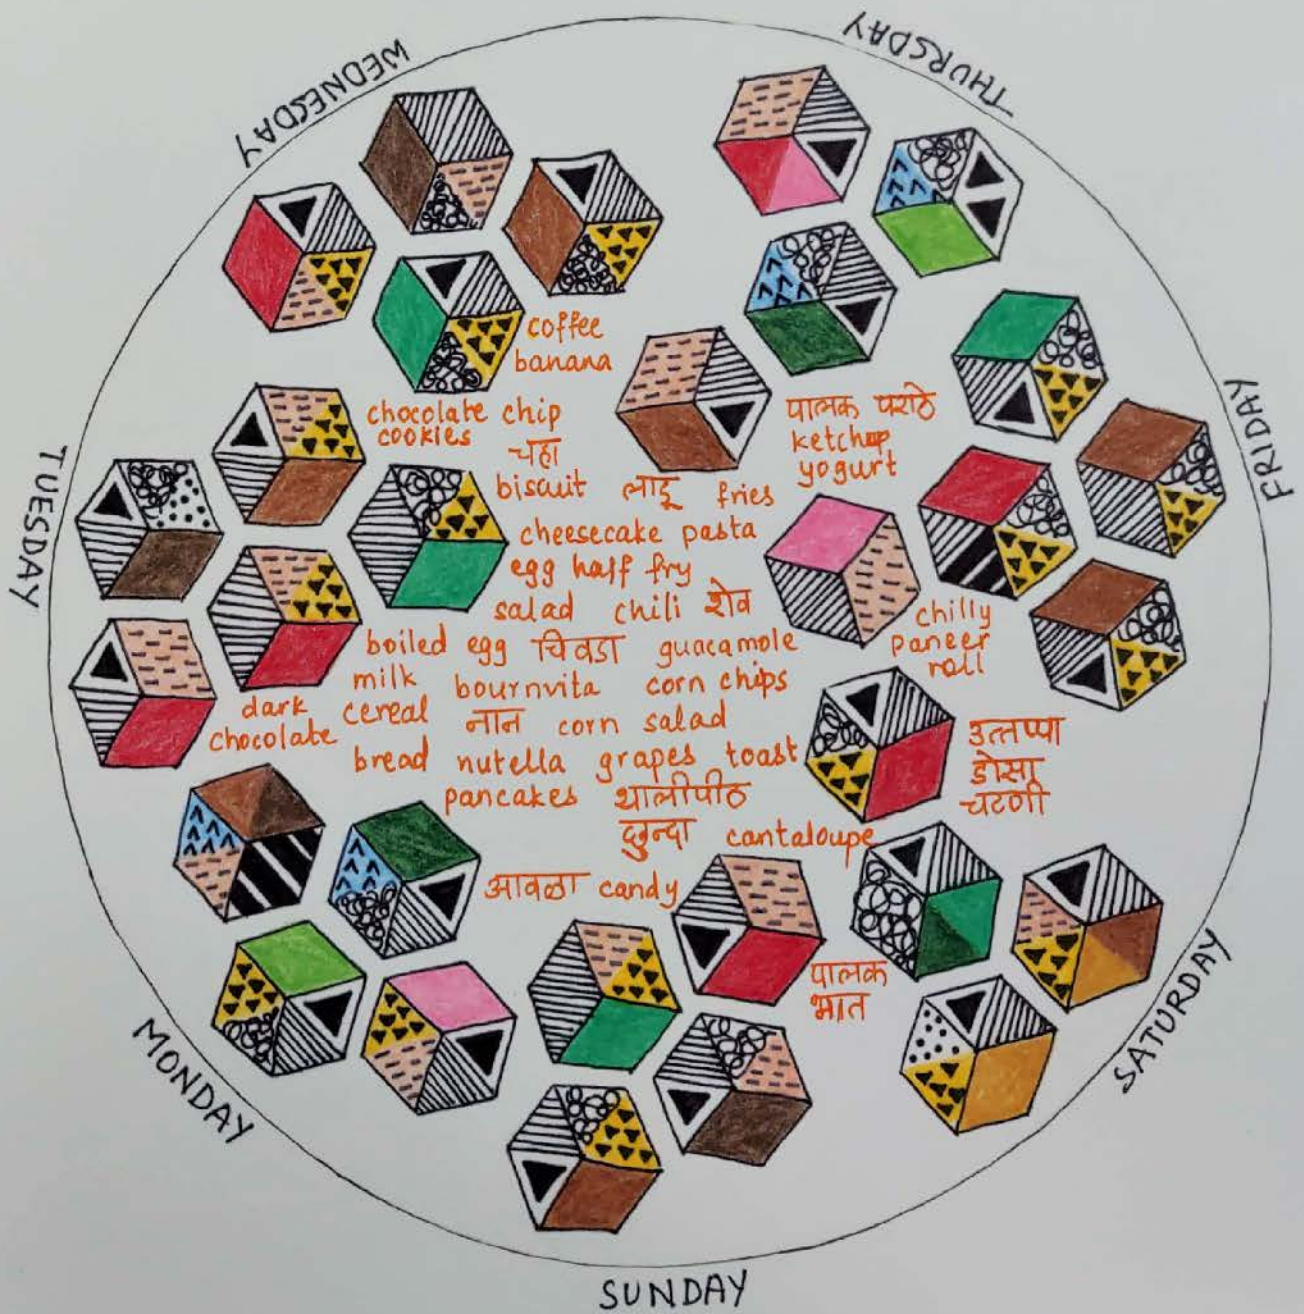 WEDNESDAY
THURSDAY
TUESDAY
FRIDAY
MONDAY
SATURDAY
SUNDAY
coffee
banana
chocolate chip
cookies
चहा
biscuit लाडू fries
पालक पराठे
ketchup
yogurt
cheesecake pasta
egg half fry
salad chili शेव
boiled egg चिवडा guacamole
milk bournvita corn chips
dark
chocolate cereal नान corn salad
bread nutella grapes toast
pancakes थालीपीठ
छुन्दा cantaloupe
आवळा candy
chilly
paneer
roll
उत्तप्पा
डोसा
चटणी
पालक
भात